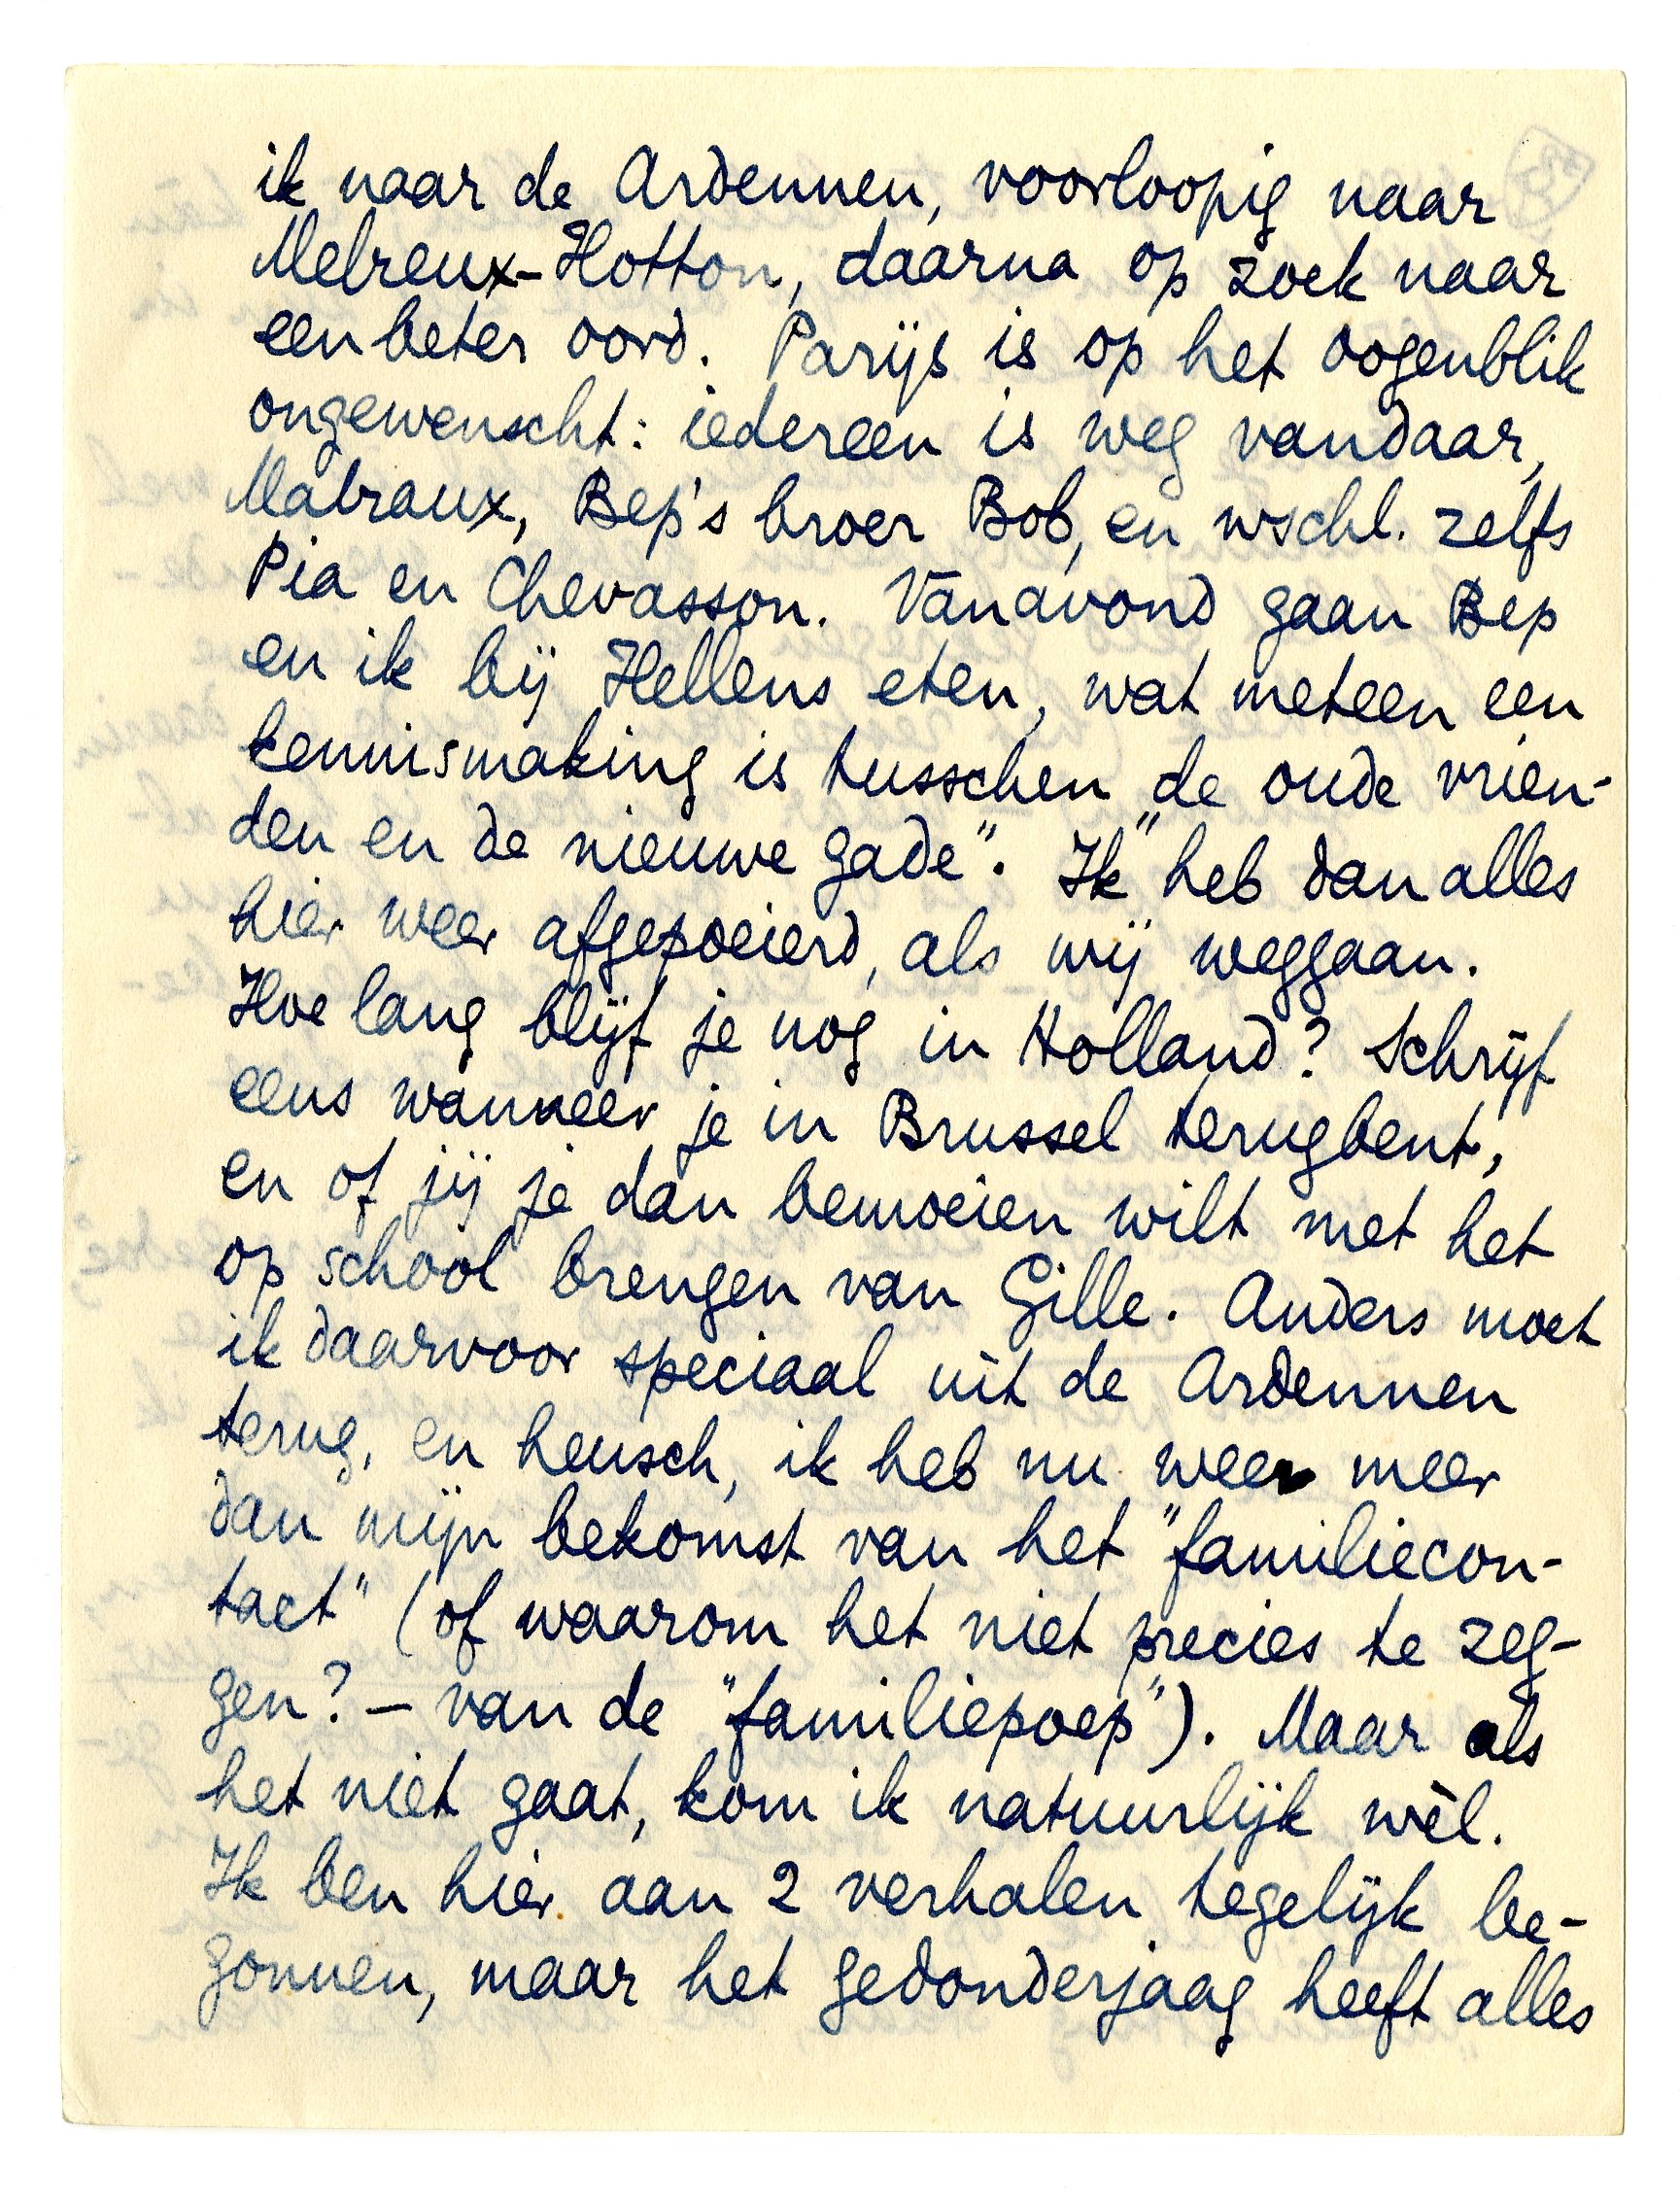 ik naar de Ardennen, voorloopig naar
Melreux-Hotton, daarna op zoek naar
een beter oord. Parijs is op het oogenblik
ongewenscht: iedereen is weg vandaar,
Malraux, Bep's broer Bob, en wschl. zelfs
Pia en Chevasson. Vanavond gaan Bep
en ik bij Hellens eten, wat meteen een
kennismaking is tusschen "de oude vrien-
den en de nieuwe gade". Ik heb dan alles
hier weer afgepoeierd, als wij weggaan.
Hoe lang blijf je nog in Holland? Schrijf
eens wanneer je in Brussel terugbent,
en of jij je dan bemoeien wilt met het
op school brengen van Gille. Anders moet
ik daarvoor speciaal uit de Ardennen
terug, en heusch, ik heb nu weer meer
dan mijn bekomst van het "familiecon-
tact" (of waarom het niet precies te zeg-
gen? – van de "familiepoep"). Maar als
het niet gaat, kom ik natuurlijk wèl.
Ik ben hier aan 2 verhalen tegelijk be-
gonnen, maar het gedonderjaag heeft alles